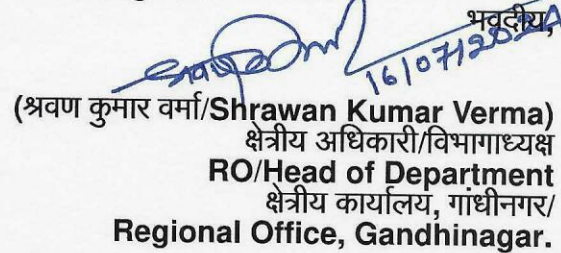 भवदीय,
16/07/2024
(श्रवण कुमार वर्मा/Shrawan Kumar Verma)
क्षेत्रीय अधिकारी/विभागाध्यक्ष
RO/Head of Department
क्षेत्रीय कार्यालय, गांधीनगर/
Regional Office, Gandhinagar.